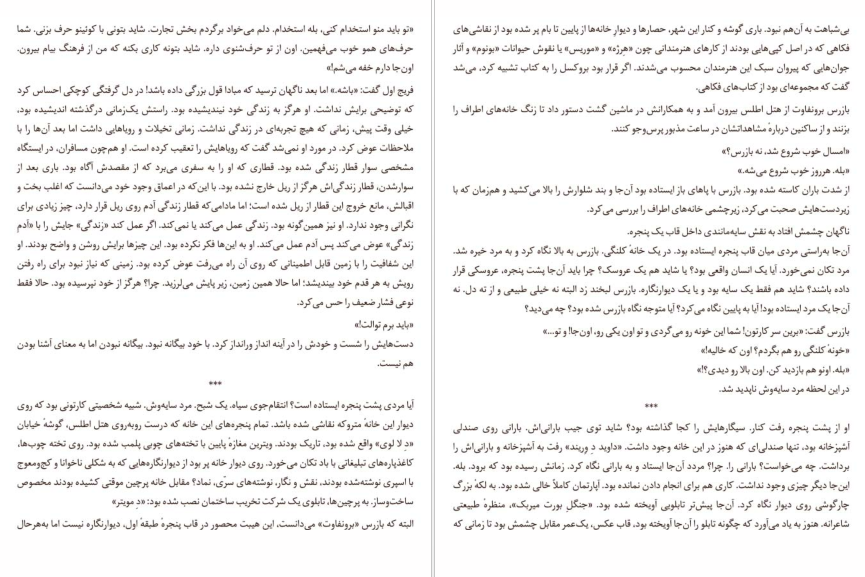 «تو باید منو استخدام کنی، بله استخدام. دلم می‌خواد برگردم بخش تجارت. شاید بتونی با کوئینو حرف بزنی. شما
حرف‌های همو خوب می‌فهمین. اون از تو حرف‌شنوی داره. شاید بتونه کاری بکنه که من از فرهنگ بیام بیرون.
اون‌جا دارم خفه می‌شم!»
فریج اول گفت: «باشه.» اما بعد ناگهان ترسید که مبادا قول بزرگی داده باشد! در دل گرفتگی کوچکی احساس کرد
که توضیحی برایش نداشت. او هرگز به زندگی خود نیندیشیده بود. راستش یک‌زمانی درگذشته اندیشیده بود،
خیلی وقت پیش، زمانی که هیچ تجربه‌ای در زندگی نداشت. زمانی تخیلات و رویاهایی داشت اما بعد آن‌ها را با
ملاحظات عوض کرد. در مورد او نمی‌شد گفت که رویاهایش را تعقیب کرده است. او هم‌چون مسافران، در ایستگاه
مشخصی سوار قطار زندگی شده بود. قطاری که او را به سفری می‌برد که از مقصدش آگاه بود. باری بعد از
سوارشدن، قطار زندگی‌اش هرگز از ریل خارج نشده بود. با این‌که در اعماق وجود خود می‌دانست که اغلب بخت و
اقبالش، مانع خروج این قطار از ریل شده است؛ اما مادامی‌که قطار زندگی آدم روی ریل قرار دارد، چیز زیادی برای
نگرانی وجود ندارد. او نیز همین‌گونه بود. زندگی عمل می‌کند یا نمی‌کند. اگر عمل کند «زندگی» جایش را با «آدمِ
زندگی» عوض می‌کند پس آدم عمل می‌کند. او به این‌ها فکر نکرده بود. این چیزها برایش روشن و واضح بودند. او
این شفافیت را با زمین قابل اطمینانی که روی آن راه می‌رفت عوض کرده بود. زمینی که نیاز نبود برای راه رفتن
رویش به هر قدم خود بیندیشد؛ اما حالا همین زمین، زیر پایش می‌لرزید. چرا؟ هرگز از خود نپرسیده بود. حالا فقط
نوعی فشار ضعیف را حس می‌کرد.
«باید برم توالت!»
دست‌هایش را شست و خودش را در آینه انداز ورانداز کرد. با خود بیگانه نبود. بیگانه نبودن اما به معنای آشنا بودن
هم نیست.
***
آیا مردی پشت پنجره ایستاده است؟ انتقام‌جوی سیاه. یک شبح. مرد سایه‌وش. شبیه شخصیتی کارتونی بود که روی
دیوار این خانهٔ متروکه نقاشی شده باشد. تمام پنجره‌های این خانه که درست روبه‌روی هتل اطلس، گوشهٔ خیابان
«دِ لا لوی» واقع شده بود، تاریک بودند. ویترین مغازهٔ پایین با تخته‌های چوبی پلمب شده بود. روی تخته چوب‌ها،
کاغذپاره‌های تبلیغاتی با باد تکان می‌خورد. روی دیوار خانه پر بود از دیوارنگاره‌هایی که به شکلی ناخوانا و کج‌ومعوج
با اسپری نوشته‌شده بودند، نقش و نگار، نوشته‌های سرّی، نماد؟ مقابل خانه پرچین موقتی کشیده بودند مخصوص
ساخت‌وساز. به پرچین‌ها، تابلوی یک شرکت تخریب ساختمان نصب شده بود: «دِ مویتر»
البته که بازرس «برونفاوت» می‌دانست، این هیبت محصور در قاب پنجرهٔ طبقهٔ اول، دیوارنگاره نیست اما به‌هرحال
بی‌شباهت به آن‌هم نبود. باری گوشه و کنار این شهر، حصارها و دیوارِ خانه‌ها از پایین تا بام پر شده بود از نقاشی‌های
فکاهی که در اصل کپی‌هایی بودند از کارهای هنرمندانی چون «هِرژه» و «موریس» یا نقوش حیوانات «بونوم» و آثار
جوان‌هایی که پیروان سبک این هنرمندان محسوب می‌شدند. اگر قرار بود بروکسل را به کتاب تشبیه کرد، می‌شد
گفت که مجموعه‌ای بود از کتاب‌های فکاهی.
بازرس برونفاوت از هتل اطلس بیرون آمد و به همکارانش در ماشین گشت دستور داد تا زنگ خانه‌های اطراف را
بزنند و از ساکنین دربارهٔ مشاهداتشان در ساعت مذبور پرس‌وجو کنند.
«امسال خوب شروع شد، نه بازرس؟»
«بله. هرروز خوب شروع می‌شه.»
از شدت باران کاسته شده بود. بازرس با پاهای باز ایستاده بود آن‌جا و بند شلوارش را بالا می‌کشید و هم‌زمان که با
زیردست‌هایش صحبت می‌کرد، زیرچشمی خانه‌های اطراف را بررسی می‌کرد.
ناگهان چشمش افتاد به نقش سایه‌مانندی داخل قاب یک پنجره.
آن‌جا به‌راستی مردی میان قاب پنجره ایستاده بود. در یک خانهٔ کلنگی. بازرس به بالا نگاه کرد و به مرد خیره شد.
مرد تکان نمی‌خورد. آیا یک انسان واقعی بود؟ یا شاید هم یک عروسک؟ چرا باید آن‌جا پشت پنجره، عروسکی قرار
داده باشند؟ شاید هم فقط یک سایه بود و یا یک دیوارنگاره. بازرس لبخند زد البته نه خیلی طبیعی و از ته دل. نه
آن‌جا یک مرد ایستاده بود! آیا به پایین نگاه می‌کرد؟ آیا متوجه نگاه بازرس شده بود؟ چه می‌دید؟
بازرس گفت: «برین سر کارتون! شما این خونه رو می‌گردی و تو اون یکی رو، اون‌جا! و تو...»
«خونهٔ کلنگی رو هم بگردم؟ اون که خالیه!»
«بله. اونو هم بازدید کن. اون بالا رو دیدی؟!»
در این لحظه مرد سایه‌وش ناپدید شد.
***
او از پشت پنجره رفت کنار. سیگارهایش را کجا گذاشته بود؟ شاید توی جیب بارانی‌اش. بارانی روی صندلی
آشپزخانه بود، تنها صندلی‌ای که هنوز در این خانه وجود داشت. «داوید دِ وِریند» رفت به آشپزخانه و بارانی‌اش را
برداشت. چه می‌خواست؟ بارانی را. چرا؟ مردد آن‌جا ایستاد و به بارانی نگاه کرد. زمانش رسیده بود که برود. بله.
این‌جا دیگر چیزی وجود نداشت. کاری هم برای انجام دادن نمانده بود. آپارتمان کاملاً خالی شده بود. به لکهٔ بزرگ
چارگوشی روی دیوار نگاه کرد. آن‌جا پیش‌تر تابلویی آویخته شده بود. «جنگلِ بورت میربک»، منظرهٔ طبیعتی
شاعرانه. هنوز به یاد می‌آورد که چگونه تابلو را آن‌جا آویخته بود، قاب عکس، یک‌عمر مقابل چشمش بود تا زمانی که